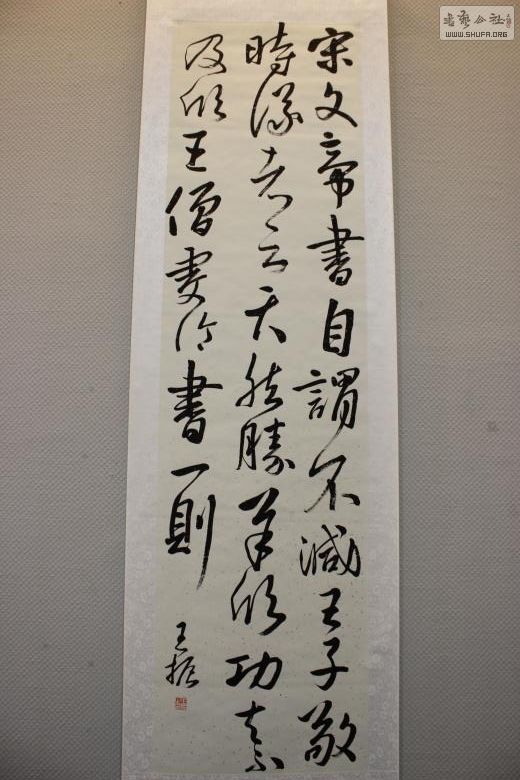 宋文帝書自謂不減王子敬
時議者云天然勝羊欣功夫不
及欣王僧虔論書一則
王振
書藝公社
WWW.SHUFA.ORG